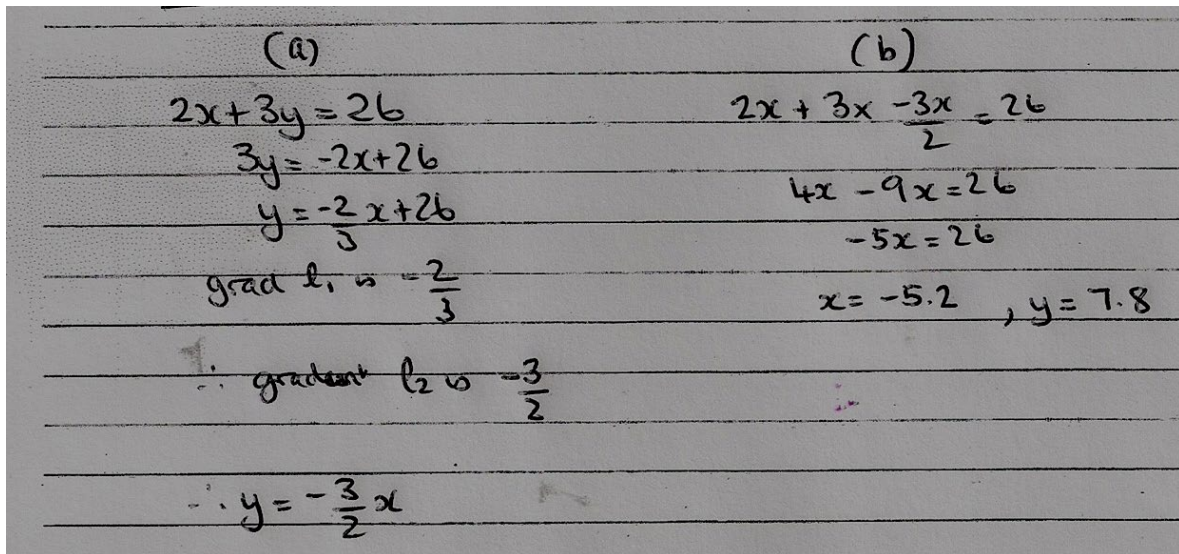 (a)
2x+3y=26
3y=-2x+26
y=-2/3 x+26
grad l₁ is -2/3
∴ gradient l₂ is -3/2
∴ y=-3/2 x
(b)
2x + 3x -3x/2 = 26
4x - 9x = 26
-5x = 26
x = -5.2 , y = 7.8